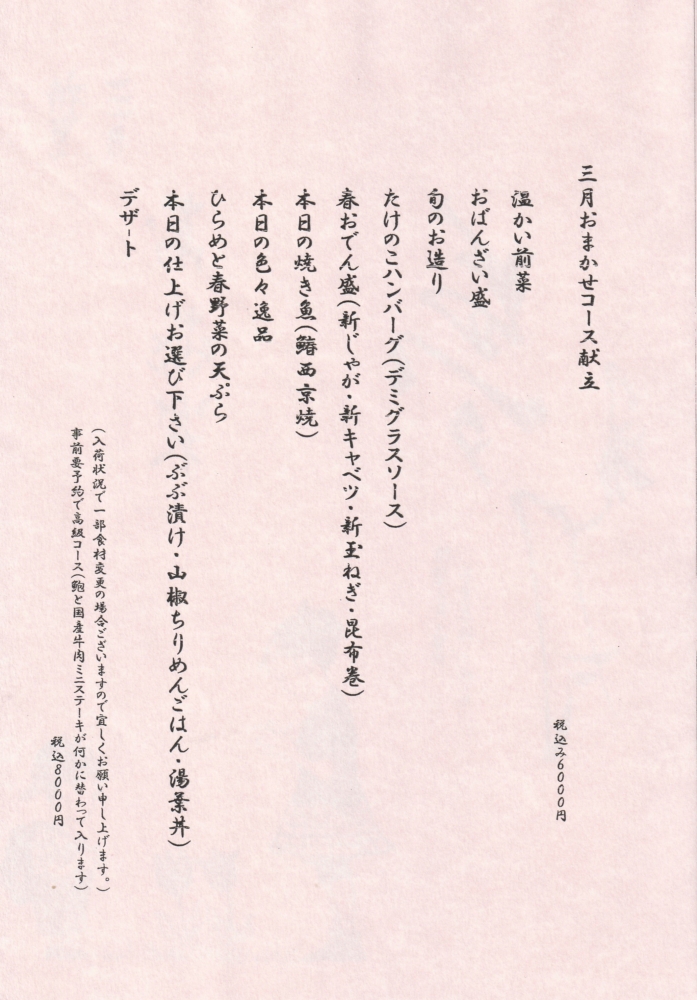 三月おまかせコース献立
税込み6000円
温かい前菜
おばんざい盛
旬のお造り
たけのこハンバーグ(デミグラスソース)
春おでん盛(新じゃが・新キャベツ・新玉ねぎ・昆布巻)
本日の焼き魚(鰆西京焼)
本日の色々逸品
ひらめと春野菜の天ぷら
本日の仕上げお選び下さい(ぶぶ漬け・山椒ちりめんごはん・湯葉丼)
デザート
(入荷状況で一部食材変更の場合ございますので宜しくお願い申し上げます。)
事前要予約で高級コース(鮑と国産牛肉ミニステーキが何かに替わって入ります)
税込8000円